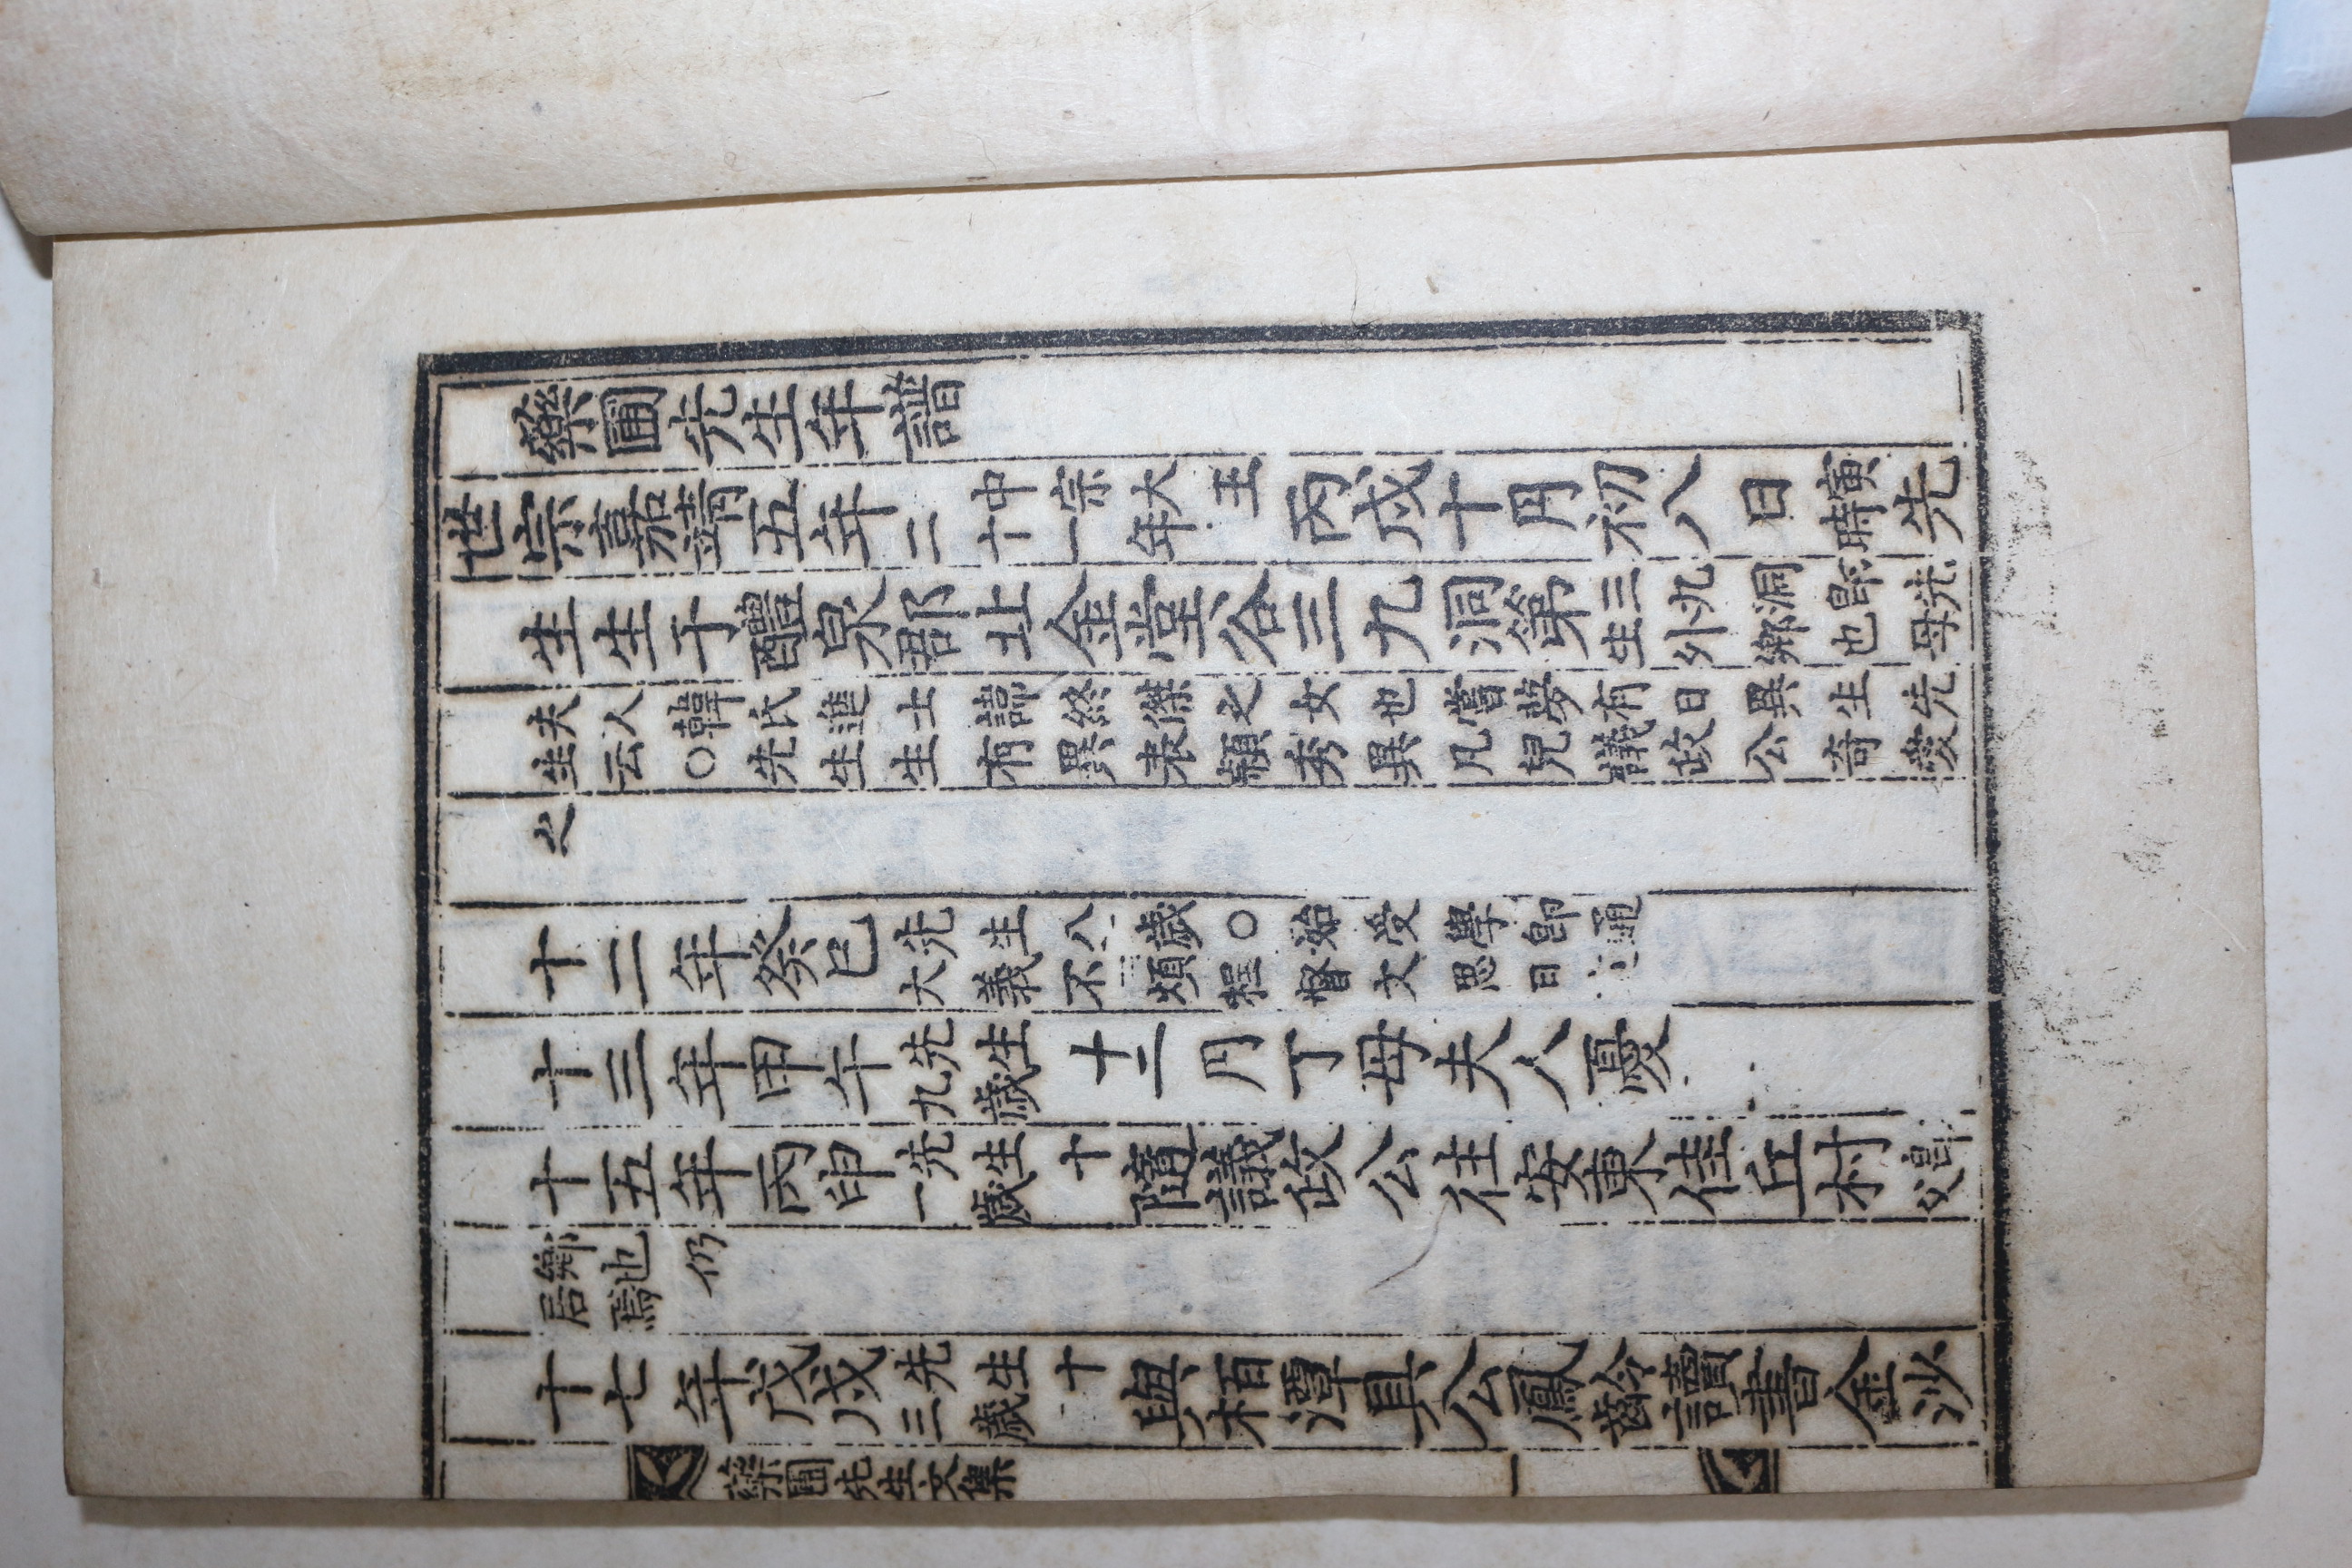 藥圃先生年譜
世宗嘉靖五年中宗大王二十一年丙戌十月初八日寅時先
生生于醴泉郡北金堂谷三九洞第三九洞卽先生外鄕也母
夫人韓氏進士諱終傑之女也嘗夢有日異生先
生云○先生生有異表穎秀異凡兒議政公奇愛
之
十二年癸巳先生八歲○始受學卽通
大義不煩程督文思日
十三年甲午先生九歲十二月丁母夫人憂
十五年丙申先生十一歲隨議政公往安東佳丘村卽父
鄕也仍
居焉
十七年戊戌先生十三歲與栢潭具公鳳齡讀書金沙
藥圃先生文集
一